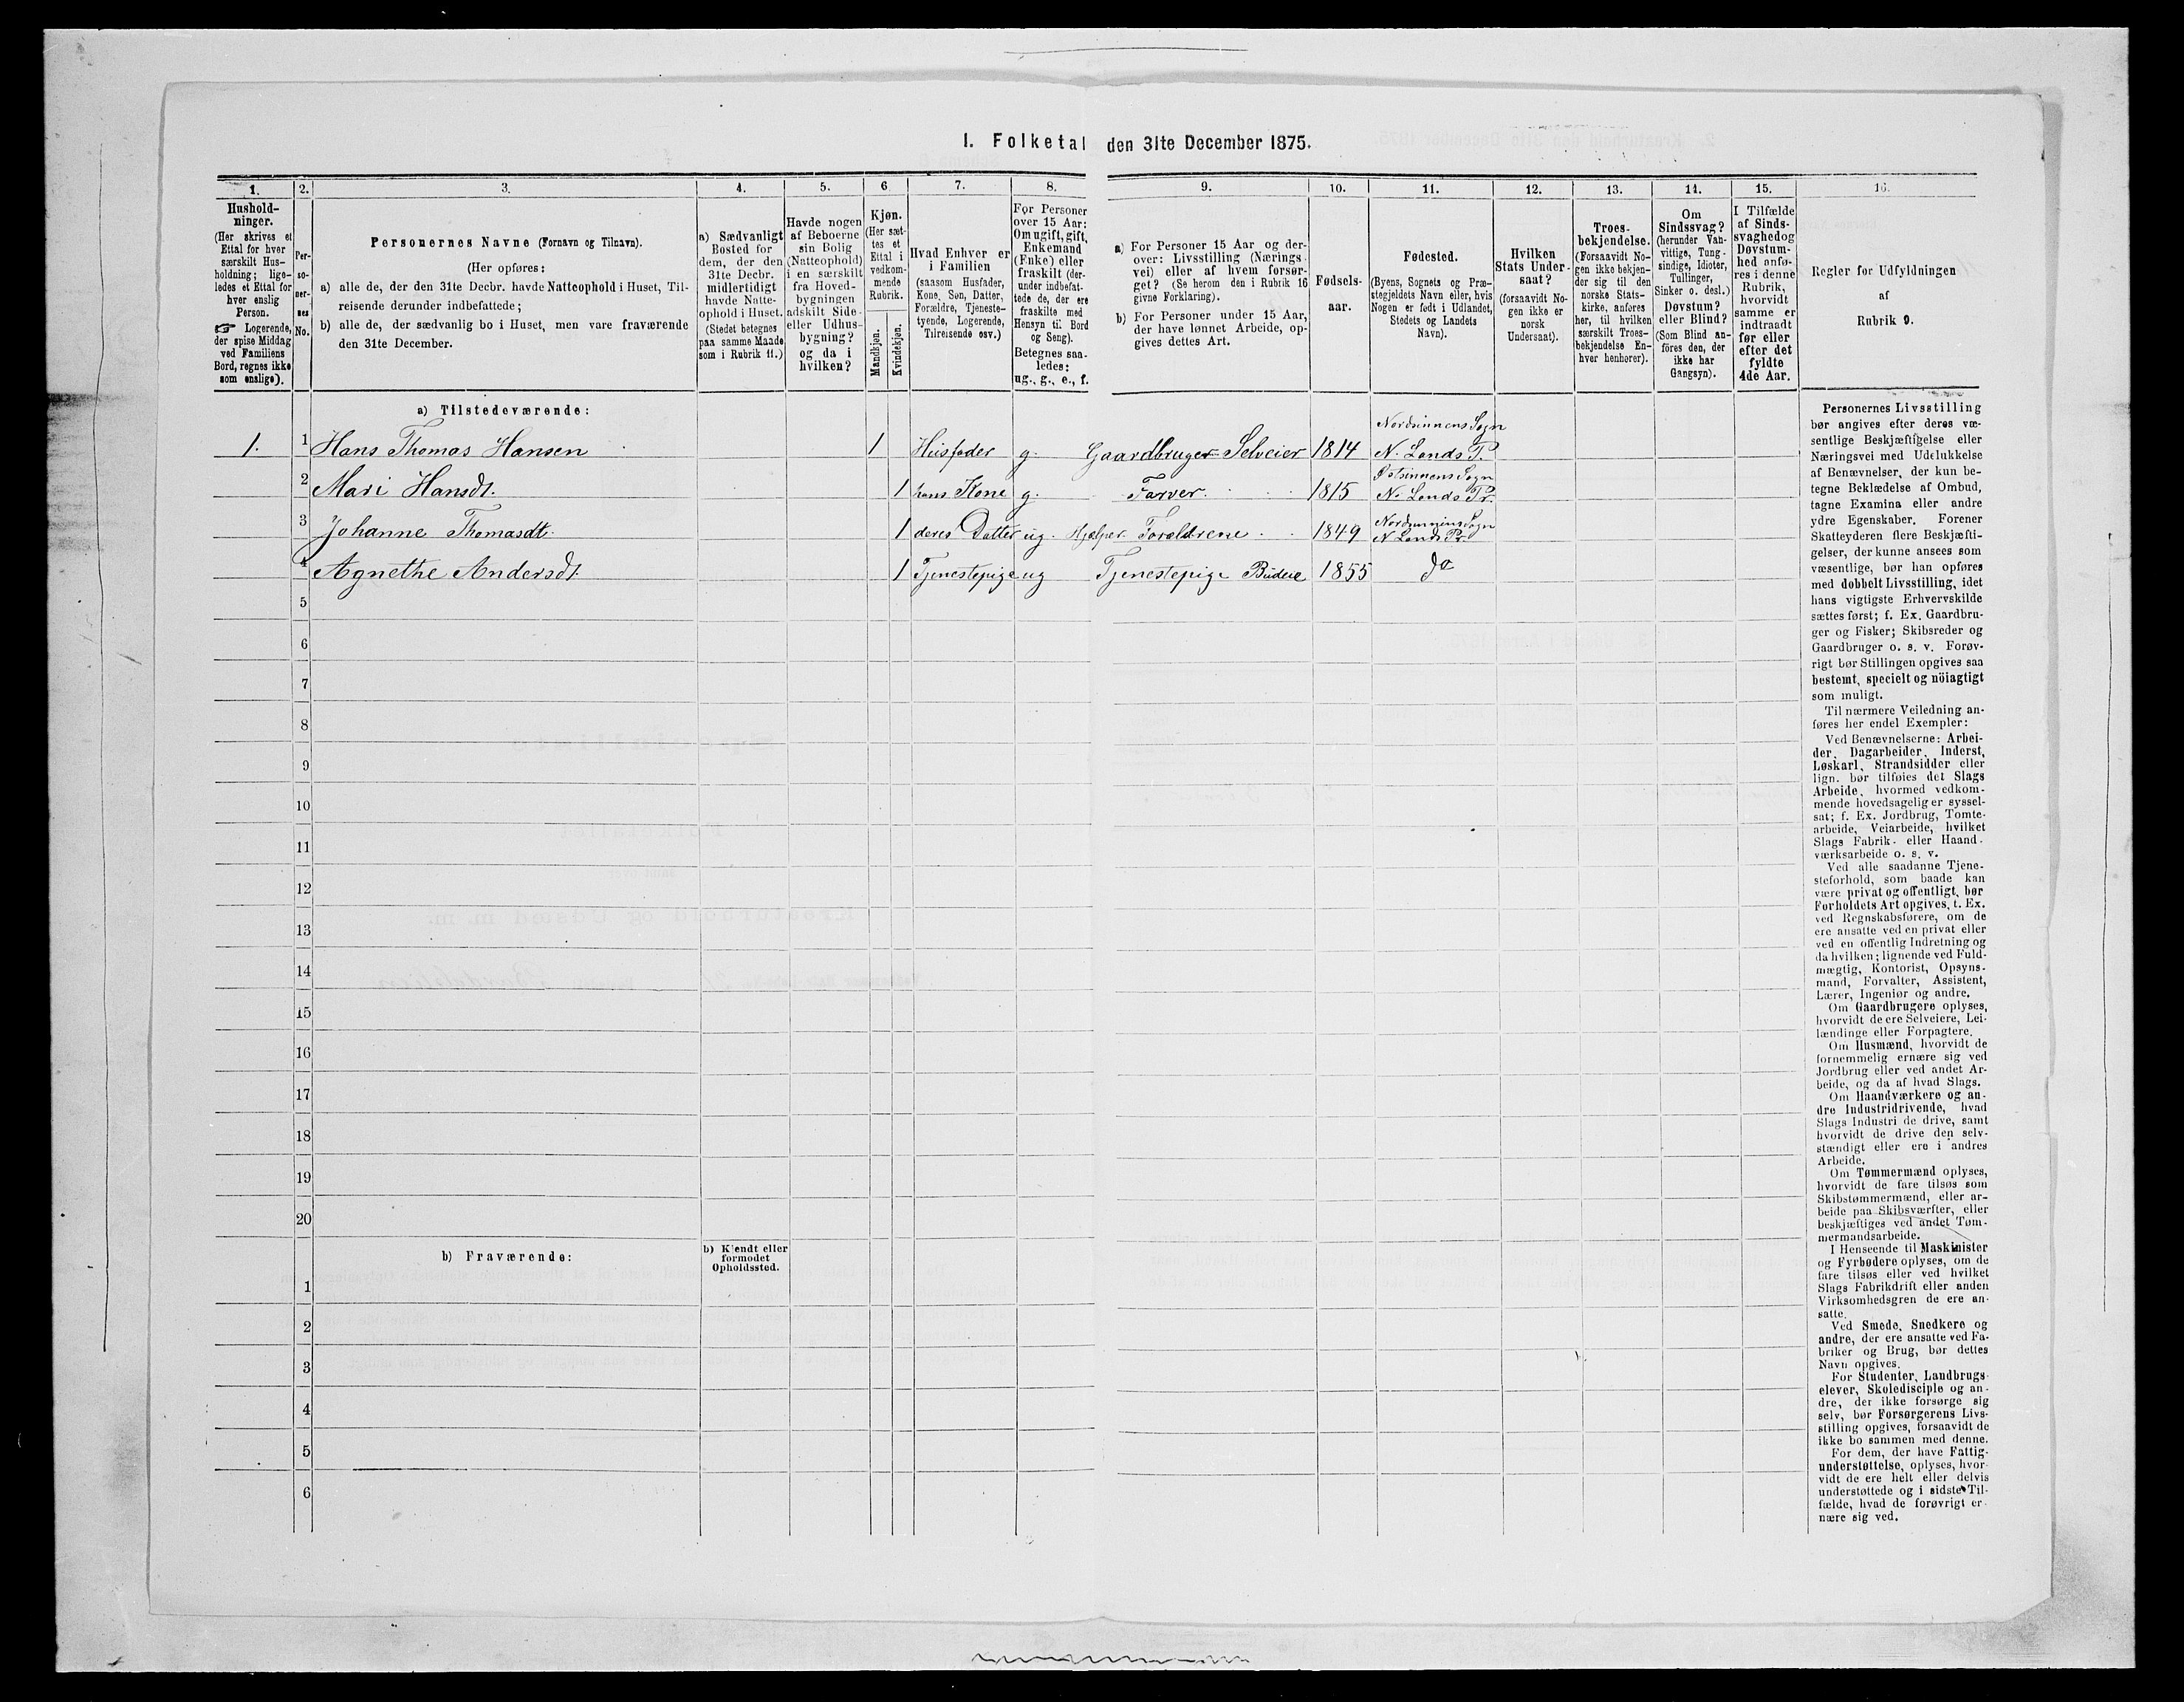 1. Folketal den 31te December 1875.
1. 2. 3. 4. 5. 6 7. 8. 9. 10. 11. 12. 13. 11. 15. 16.
Hushold-
ninger.
(Her skrives et
Ettal for hver
særskilt Hus-
holdning; lige-
ledes et Ettal for
hver enslig
Person.
☞ Logerende,
der spise Middag
ved Familiens
Bord, regnes ikke
som enslige).
Per-
so-
ner-
nes
No.
Personernes Navne (Fornavn og Tilnavn).
(Her opføres:
a) alle de, der den 31te Decbr. havde Natteophold i Huset, Til-
reisende derunder indbefattede;
b) alle de, der sædvanlig bo i Huset, men vare fraværende
den 31te December.
a) Sædvanligt
Bosted for
dem, der den
31te Decbr.
midlertidigt
havde Natte-
ophold i Huset.
(Stedet betegnes
paa samme Maade
som i Rubrik 11.)
Havde nogen
af Beboerne
sin Bolig
(Natteophold)
i en særskilt
fra Hoved-
bygningen
adskilt Side-
eller Udhus-
bygning?
og da i
hvilken?
Kjøn.
(Her sæt-
tes et
Ettal i
vedkom-
mende
Rubrik.
Mandkjøn.
Kvindekjøn.
Hvad Enhver er
i Familien
(saasom Husfader,
Kone, Søn, Datter,
Forældre, Tjeneste-
tyende, Logerende,
Tilreisende osv.)
For Personer
over 15 Aar:
Om ugift, gift,
Enkemand
(Enke) eller
fraskilt (der-
under indbefat-
tede de, der ere
fraskilte med
Hensyn til Bord
og Seng).
Betegnes saa-
ledes:
ug., g., e., f.
a) For Personer 15 Aar og der-
over: Livsstilling (Nærings-
vei) eller af hvem forsør-
get? (Se herom den i Rubrik 16
givne Forklaring).
b) For Personer under 15 Aar,
der have lønnet Arbeide, op-
gives dettes Art.
Fødsels-
aar.
Fødested.
(Byens, Sognets og Præ-
stegjeldets Navn eller, hvis
Nogen er født i Udlandet,
Stedets og Landets
Navn).
Hvilken
Stats Under-
saat?
(forsaavidt No-
gen ikke er
norsk
Undersaat).
Troes-
bekjendelse.
(Forsaavidt No-
gen ikke bekjen-
der sig til den
norske Stats-
kirke, anføres
her, til hvilken
særskilt Troes-
bekjendelse En-
hver henhører).
Om
Sindssvag?
(herunder Van-
vittige, Tung-
sindige, Idioter,
Tullinger,
Sinker o. desl.)
Døvstum?
eller Blind?
(Som Blind an-
föres den, der
ikke har
Gangsyn).
I Tilfælde
af Sinds-
svaghed og
Døvstum-
hed anfø-
res i denne
Rubrik,
hvorvidt
samme er
indtraadt
før eller
efter det
fyldte
4de Aar.
Regler for Udfyldningen
af
Rubrik 9.
a) Tilstedeværende:
1. 1 Hans Thomas Hansen 1 Husfader g. Gaardbruger Selveier 1814 Nordsinnens Sogn
N. Lands P.
2 Mari Hansdt. 1 hans Kone g. Farver. 1815 Østsinnens Sogn
N. Lands Pr.
3 Johanne Thomasdt. 1 deres Datter ug. Hjælper Forældrene 1849 Nordsinnens Sogn
N Lands Pr.
4 Agnethe Andersdt. 1 Tjenestepige ug Tjenestepige Budeie 1855 do
5
6
7
8
9
10
11
12
13
14
15
16
17
18
19
20
b) Fraværende:
b) Kjendt eller
formodet
Opholdssted.
1
2
3
4
5
6
Personernes Livsstilling
bør angives efter deres væ-
sentlige Beskjæftigelse eller
Næringsvei med Udelukkelse
af Benævnelser, der kun be-
tegne Beklædelse af Ombud,
tagne Examina eller andre
ydre Egenskaber. Forener
Skatteyderen flere Beskjæfti-
gelser, der kunne ansees som
væsentlige, bør han opføres
med dobbelt Livsstilling, idet
hans vigtigste Erhvervskilde
sættes først; f. Ex. Gaardbru-
ger og Fisker; Skibsreder og
Gaardbruger o. s. v. Forøv-
rigt bør Stillingen opgives saa
bestemt, specielt og nöiagtigt
som muligt.
Til nærmere Veiledning an-
føres her endel Exempler:
Ved Benævnelserne: Arbei-
der, Dagarbeider, Inderst,
Løskarl, Strandsidder eller
lign. bør tilføies det Slags
Arbeide, hvormed vedkom-
mende hovedsagelig er syssel-
sat; f. Ex. Jordbrug, Tomte-
arbeide, Veiarbeide, hvilket
Slags Fabrik- eller Haand-
værksarbeide o. s. v.
Ved alle saadanne Tjene-
steforhold, som baade kan
være privat og offentligt, bør
Forholdets Art opgives, t. Ex.
ved Regnskabsførere, om de
ere ansatte ved en privat eller
ved en offentlig Indretning og
da hvilken; lignende ved Fuld-
mægtig, Kontorist, Opsyns-
mand, Forvalter, Assistent,
Lærer, Ingeniør og andre.
Om Gaardbrugere oplyses,
hvorvidt de ere Selveiere, Lei-
lændinge eller Forpagtere.
Om Husmænd, hvorvidt de
fornemmelig ernære sig ved
Jordbrug eller ved andet Ar-
beide, og da af hvad Slags.
Om Haandværkere og an-
dre Industridrivende, hvad
Slags Industri de drive, samt
hvorvidt de drive den selv-
stændigt eller ere i andres
Arbeide.
Om Tømmermænd oplyses,
hvorvidt de fare tilsøs som
Skibstømmermænd, eller ar-
beide paa Skibsværfter, eller
beskjæftiges ved andet Tøm-
mermandsarbeide.
I Henseende til Maskinister
og Fyrbødere oplyses, om de
fare tilsøs eller ved hvilket
Slags Fabrikdrift eller anden
Virksomhedsgren de ere an-
satte.
Ved Smede, Snedkere og
andre, der ere ansatte ved Fa-
briker og Brug, bør dettes
Navn opgives.
For Studenter, Landbrugs-
elever, Skoledisciple og an-
dre, der ikke forsørge sig
selv, bør Forsørgerens Livs-
stilling opgives, forsaavidt de
ikke bo sammen med denne.
For dem, der have Fattig-
understøttelse, oplyses, hvor-
vidt de ere helt eller delvis
understøttede og i sidste Til-
fælde, hvad de forøvrigt er-
nære sig ved.